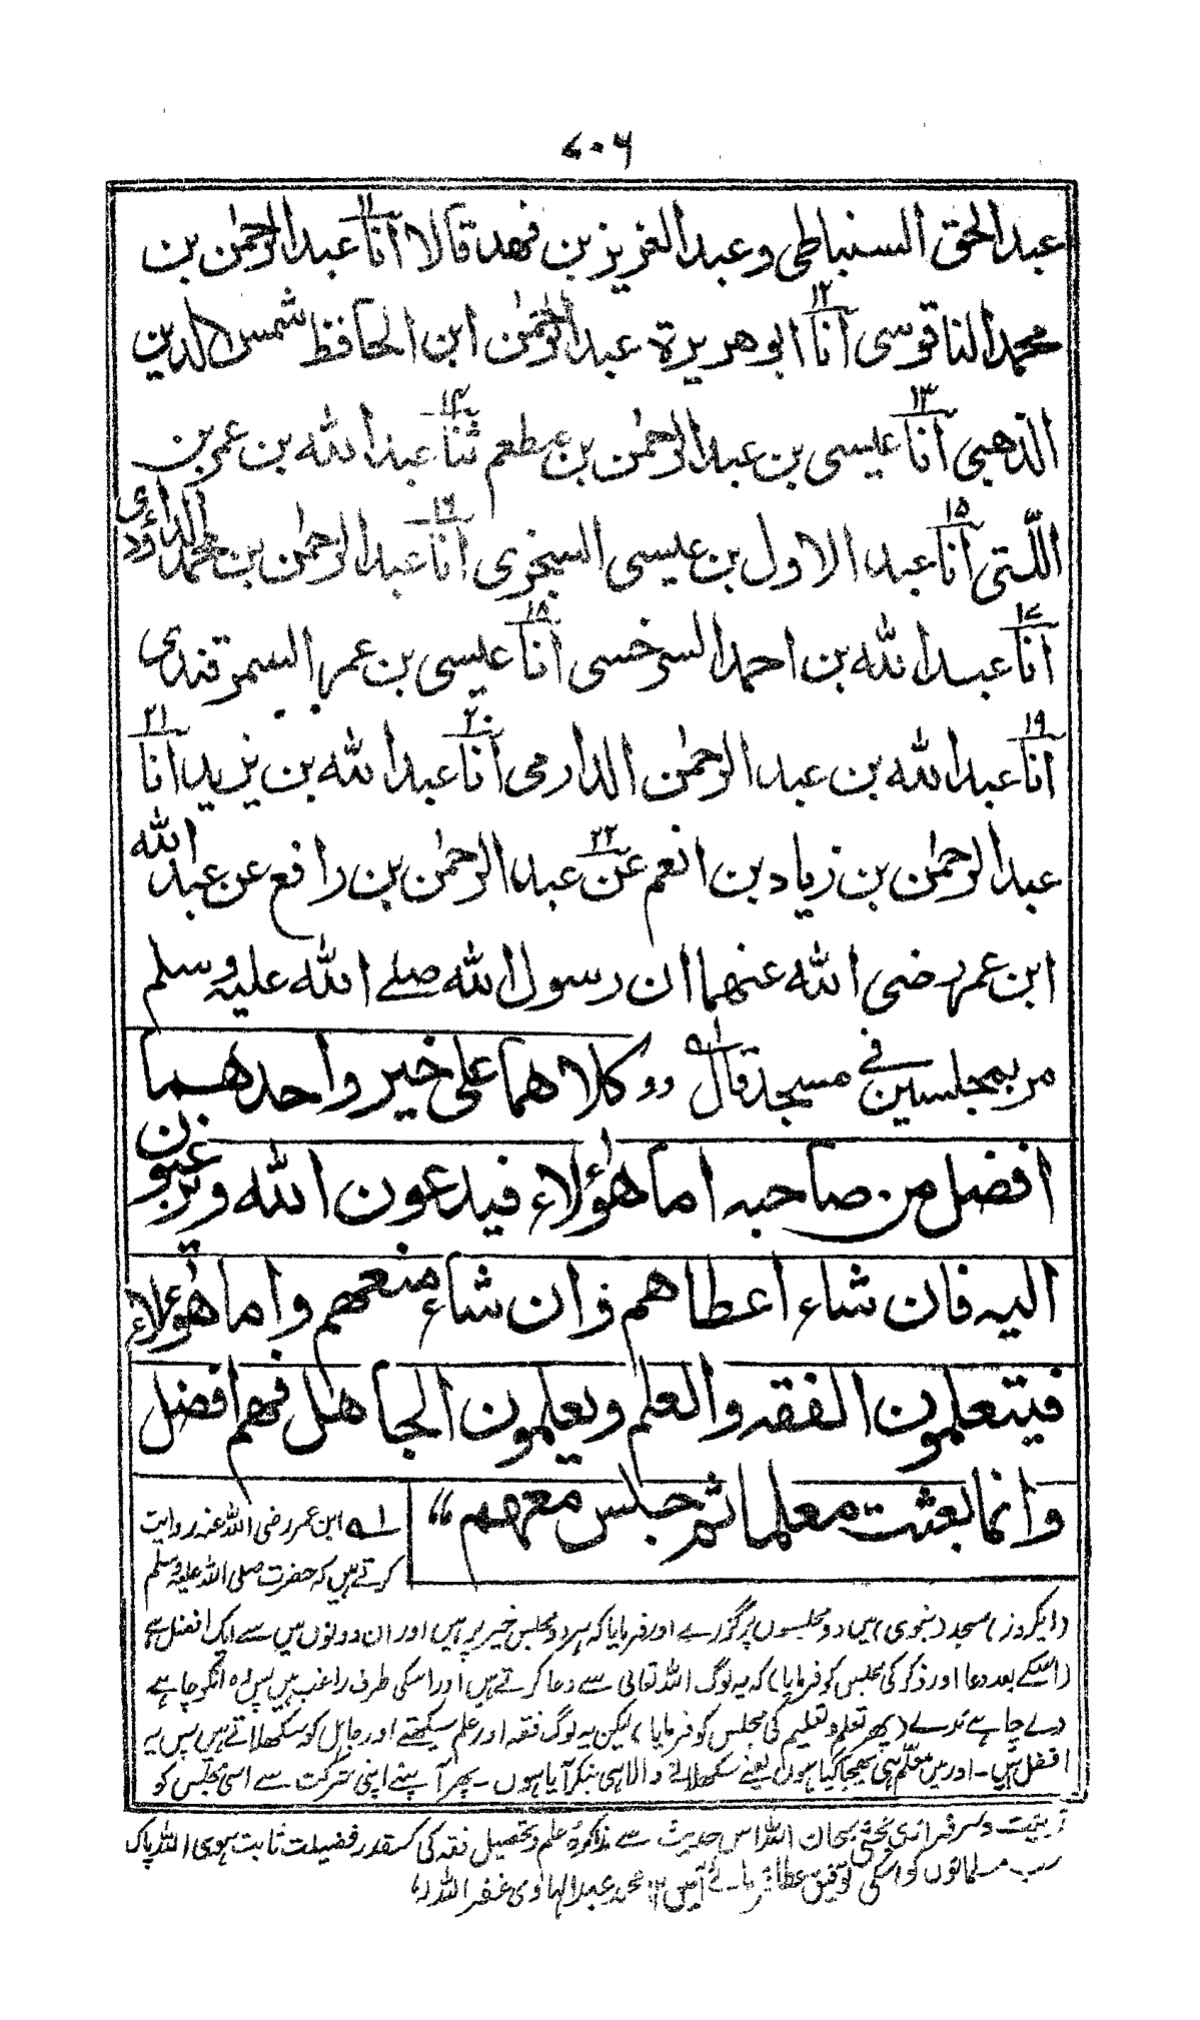 ۷۰۶
عبدالحق السنباطی وعبدالعزیز بن فهد قالا انا۱۱ عبدالرحمٰن بن
محمدالناقوسی انا۱۲ ابوهریرة عبدالرحمٰن ابن الحافظ شمس الدین
الذهبی انا۱۳ عیسی بن عبدالرحمٰن بن مطعم ثنا۱۴ عبدالله بن عمر بن
اللّتی انا۱۵ عبد الاول بن عیسی السجزی انا۱۶ عبدالرحمٰن بن محمد الداؤدی
انا۱۷ عبدالله بن احمد السرخسی انا۱۸ عیسی بن عمر السمرقندی
انا۱۹ عبدالله بن عبدالرحمٰن الدارمی انا۲۰ عبدالله بن یزید انا۲۱
عبدالرحمٰن بن زیاد بن انعم عن۲۲ عبدالرحمٰن بن رافع عن عبدالله
ابن عمر رضی الله عنهما ان رسول الله صلے الله علیه وسلم
مر بمجلسین فے مسجد فقال ۱ه ،،کلاهما علی خیر واحدهما
افضل من صاحبه اما هٰؤلاء فیدعون الله ویرغبون
الیه فان شاء اعطاهم وان شاء منعهم واما هٰؤلاء
فیتعلمون الفقه والعلم ویعلمون الجاهل فهم افضل
وانما بعثت معلما ثم جلس معهم “
۱ه ابن عمر رضی اللہ عنہ روایت
کرتے ہیں کہ حضرت صلی اللہ علیہ وسلم
(ایکروز) مسجد (نبوی) میں دو مجلسوں پر گزرے اور فرمایا کہ ہر دو مجلس خیر پر ہیں اور ان دونوں میں سے ایک افضل ہے
(اسکے بعد دعا اور ذکر کی مجلس کو فرمایا) کہ یہ لوگ اللہ تعالیٰ سے دعا کرتے ہیں اور اسکی طرف راغب ہیں پس وہ انکو چاہے
دے چاہے ندے (پھر تعلم و تعلیم کی مجلس کو فرمایا) لیکن یہ لوگ فقہ اور علم سیکھتے اور جاہل کو سکھلاتے ہیں پس یہ
افضل ہیں۔ اور میں معلّم ہی بھیجا گیا ہوں یعنے سکھلانے والا ہی بنکر آیا ہوں۔ پھر آپنے اپنی شرکت سے اسی مجلس کو
زینت و سرفرازی بخشی سبحان اللہ اس حدیث سے مذاکرۂ علم و تحصیل فقہ کی کسقدر فضیلت ثابت ہوی اللہ پاک
سب مسلمانوں کو اسکی توفیق عطا فرمائے آمین ۱۲ محمد عبدالہادی غفر اللہ لہ